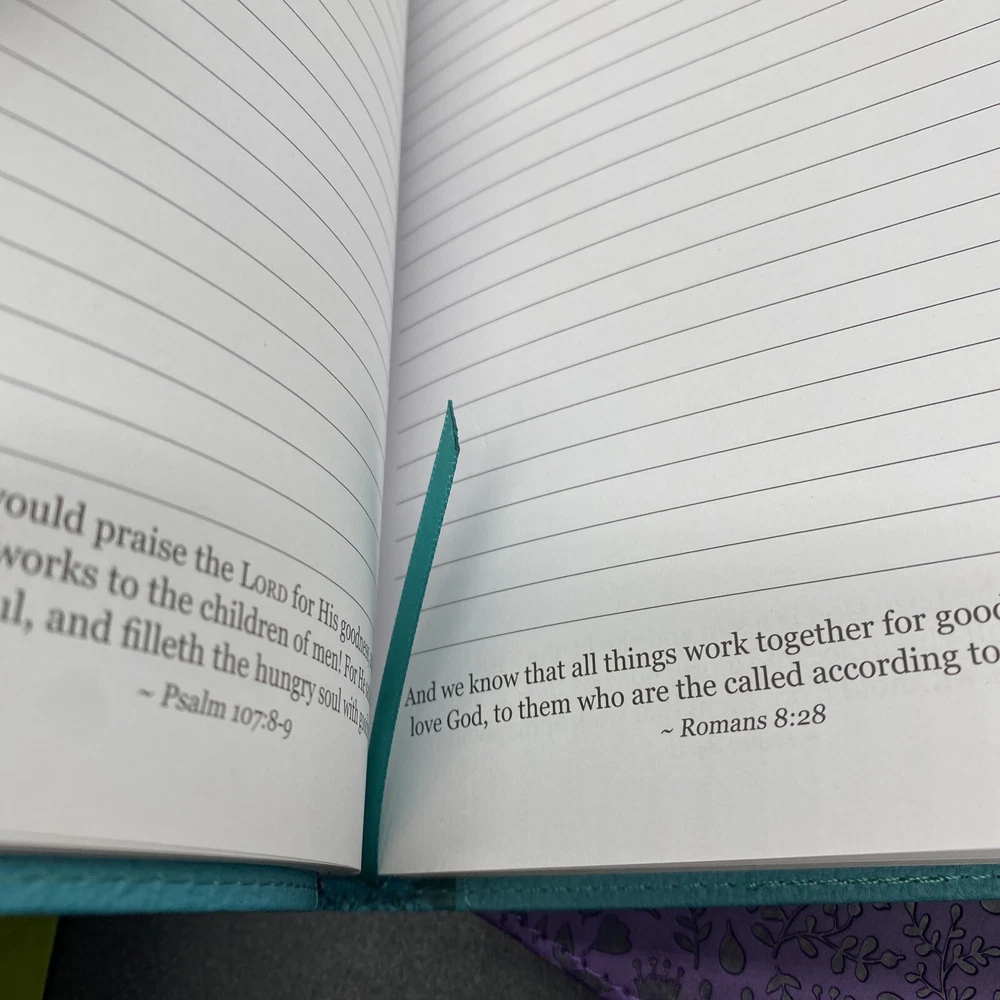 would praise the LORD for His goodness,
works to the children of men! For He
and filleth the hungry soul with
~ Psalm 107:8-9
And we know that all things work together for good
love God, to them who are the called according to
~ Romans 8:28